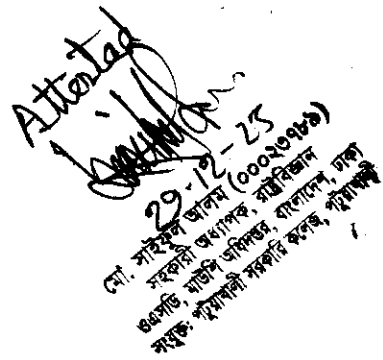 Attested
29-12-25
মো. সাইফুল আলম (০০০২৩৭৮৯)
সহকারী অধ্যাপক, রাষ্ট্রবিজ্ঞান
ওএসডি, মাউশি অধিদপ্তর, বাংলাদেশ, ঢাকা
সংযুক্ত: পটুয়াখালী সরকারি কলেজ, পটুয়াখালী